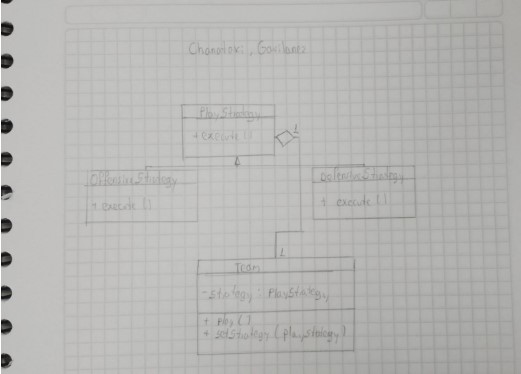 PlayStrategy
+ execute ()
1
OffensiveStrategy
+ execute ()
DefensiveStrategy
+ execute ()
1
Team
- strategy : PlayStrategy
+ play ()
+ setStrategy (playStrategy)